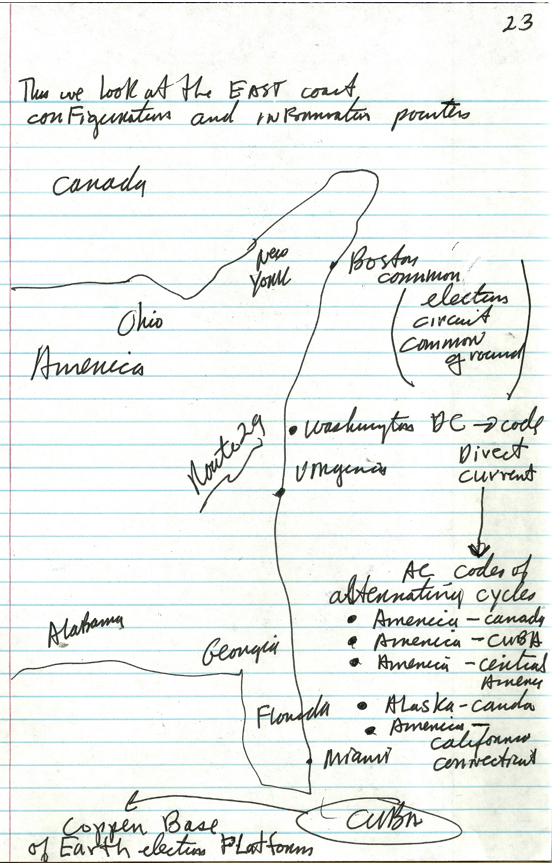 23
Thus we look at the EAST coast
configurations and information pointers
Canada
New
York
Boston
common
electron
circuit
common
ground
Ohio
America
Route 29
Washington DC → code
Direct
current
Virginia
AC codes of
alternating cycles
• America - canada
• America - CUBA
• America - central
America
• Alaska - canda
• America -
california
connecticut
Alabama
Georgia
Florida
Miami
CUBA
Copper Base
of Earth electron Platforms